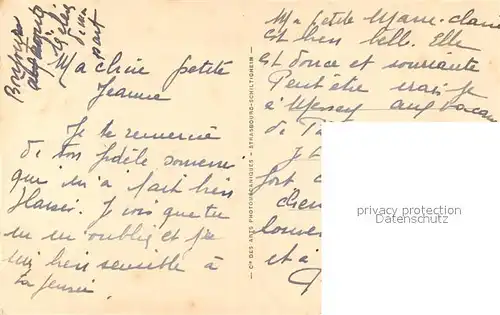 Ma chère petite
Jeanne
Je te remercie
de ton fidèle souvenir
qui m'a fait bien
plaisir. Je vois que tu
ne m'oublies et je
suis bien sensible à
ta pensée.
Bonjour
de ma
part
— Cie DES ARTS PHOTOMÉCANIQUES - STRASBOURG-SCHILTIGHEIM —
Ma petite Marie-Claire
est bien belle. Elle
est douce et souriante
Peut être irais-je
à Messey aux vacan
de
Je t
fort
chem
souven
et à
privacy protection
Datenschutz